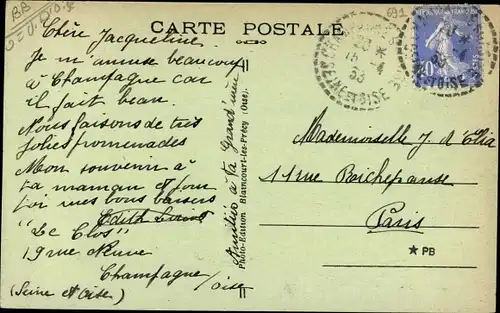 CARTE POSTALE
Chère Jacqueline
Je m'amuse beaucoup
à Champagne car
il fait beau.
Nous faisons de très
jolies promenades
Mon souvenir à
ta maman et pour
toi mes bons baisers
Edith
"Le Clos"
19 rue Neuve
Champagne
/Oise
(Seine et Oise)
Amitiés à ta Grand'mère
Photo-Edition Blaincourt-les-Précy (Oise).
691
RÉPUBLIQUE FRANÇAISE
40
15 -4
33
SEINE-ET-OISE
Mademoiselle J. d'Elia
11 rue Roichepanse
Paris
★ PB
BB